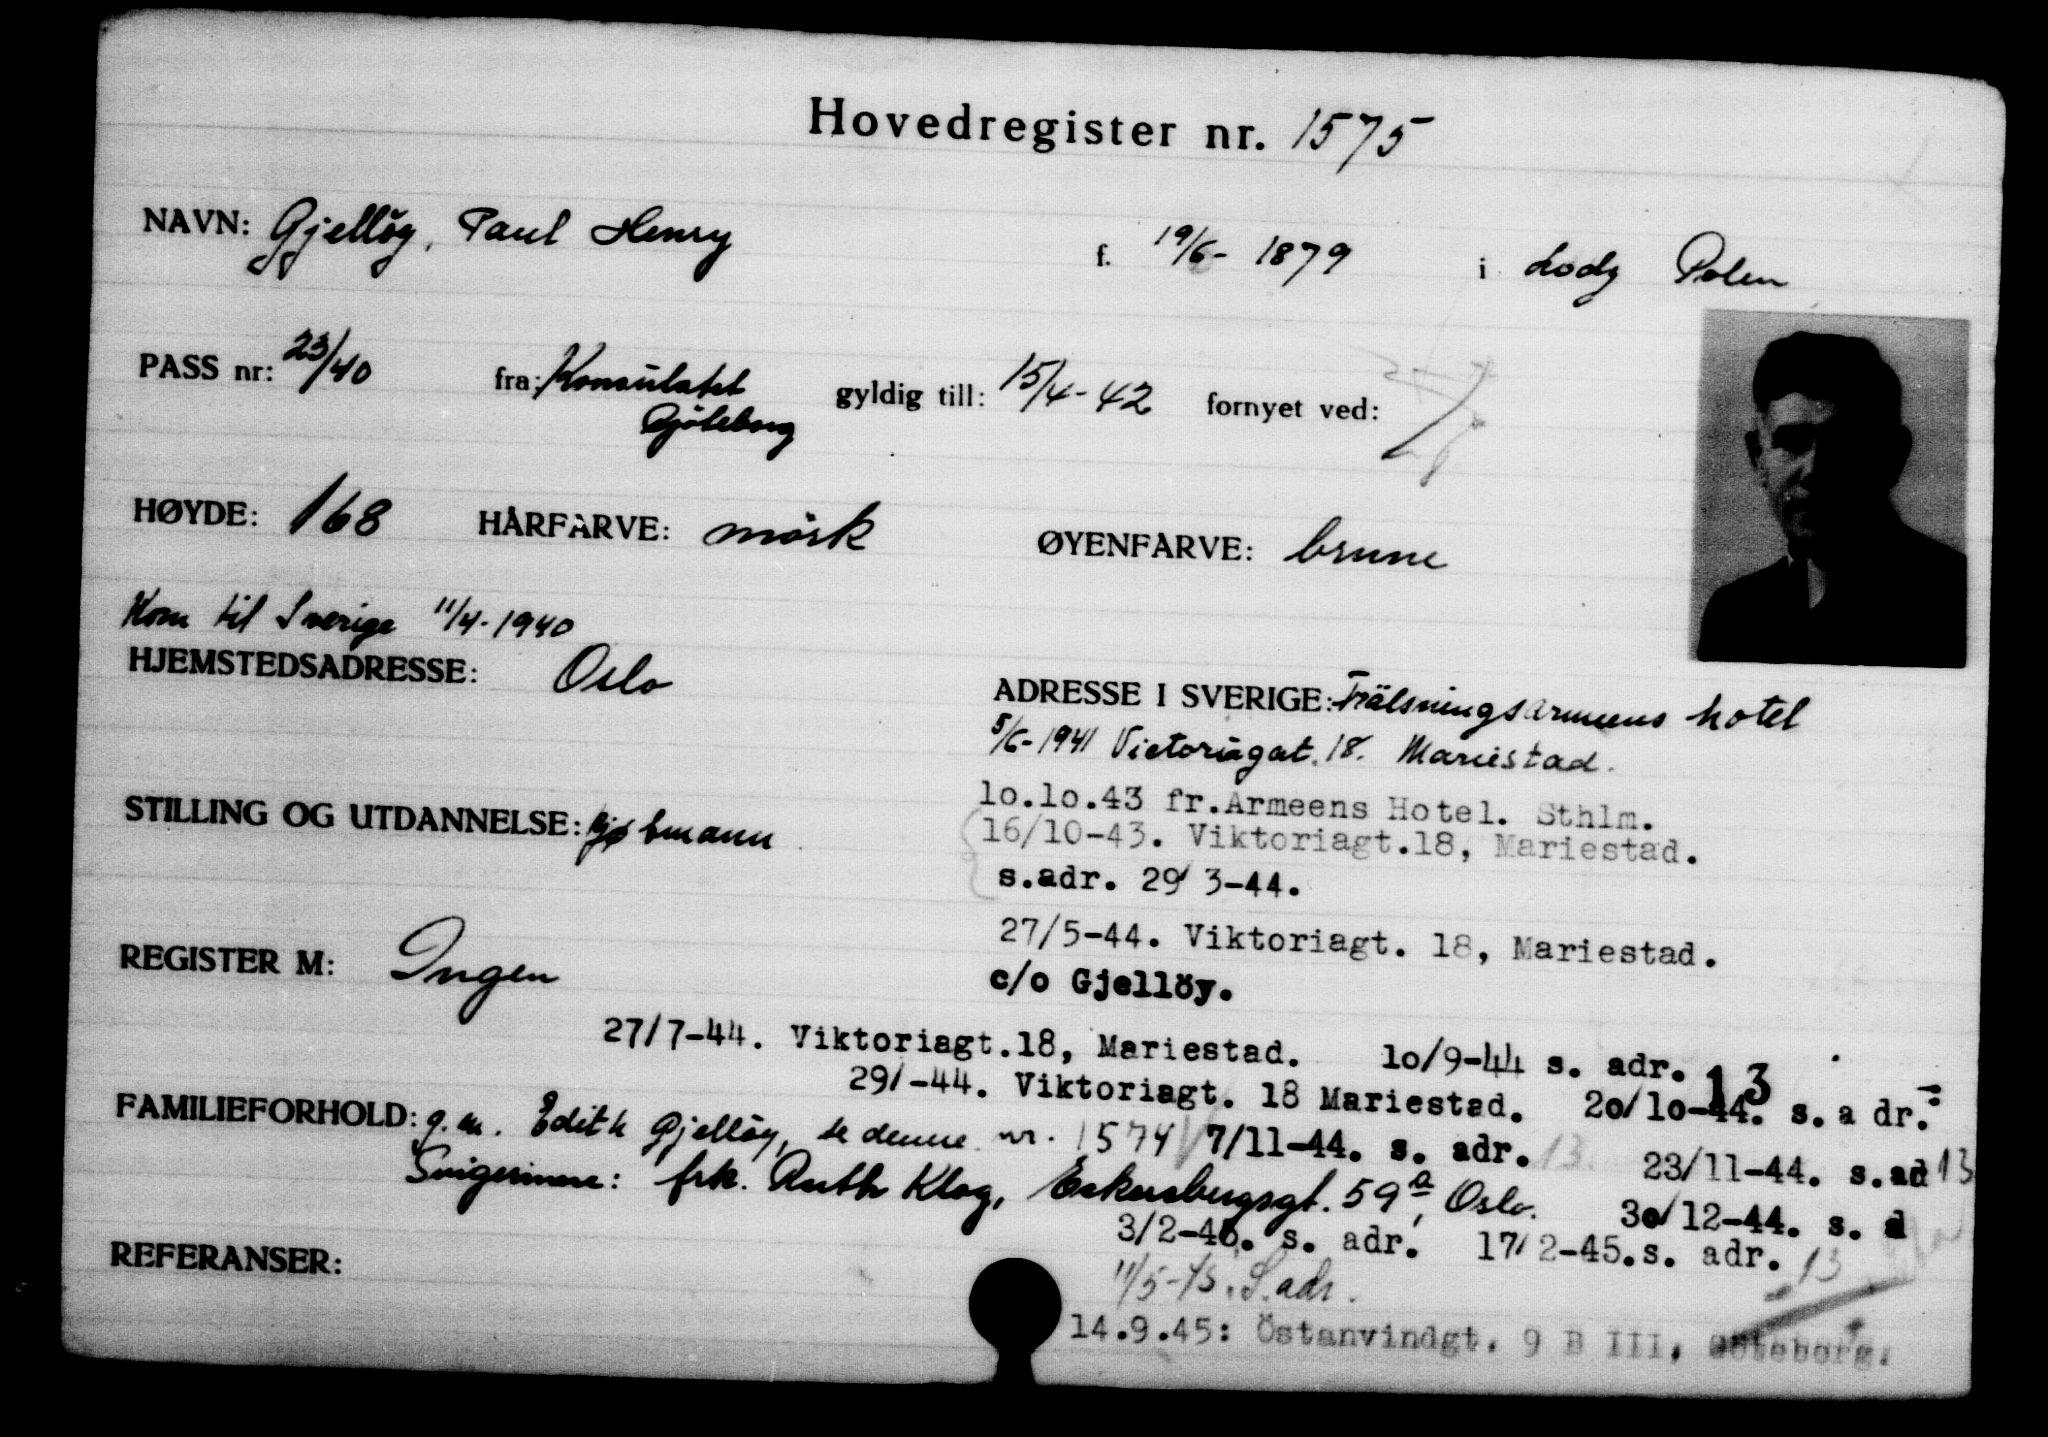 Hovedregister nr. 1575
NAVN: Gjellöy, Paul Henry f. 19/6- 1879 i Lodz Polen
PASS nr: 23/40 fra: Konsulatet Gjöteborg gyldig till: 15/4-42 fornyet ved:
HØYDE: 168 HÅRFARVE: mörk ØYENFARVE: brune
Kom til Sverige 11/4-1940
HJEMSTEDSADRESSE: Oslo
ADRESSE I SVERIGE: Frälsningsarmeens hotel
5/6-1941 Victoriagat. 18. Mariestad.
10.10.43 fr.Armeens Hotel. Sthlm.
16/10-43. Viktoriagt.18, Mariestad.
STILLING OG UTDANNELSE: kjøbmann
s.adr. 29/3-44.
27/5-44. Viktoriagt. 18, Mariestad.
c/o Gjellöy.
REGISTER M: Ingen
27/7-44. Viktoriagt.18, Mariestad. 10/9-44 s. adr. 13
29/-44. Viktoriagt. 18 Mariestad. 20/10-44. s.a dr.-
FAMILIEFORHOLD: g.m. Edith Gjellöy, se denne nr. 1574 7/11-44. s. adr. 13. 23/11-44. s.ad 13
Svigerinne: frk. Ruth Klog, Eckersbergsgt. 59a, Oslo. 30/12-44. s. a
3/2-45. s. adr. 17/2-45.s. adr. 13
REFERANSER:
11/5-45. S.adr.
14.9.45: Östanvindgt. 9 B III, Göteborg.